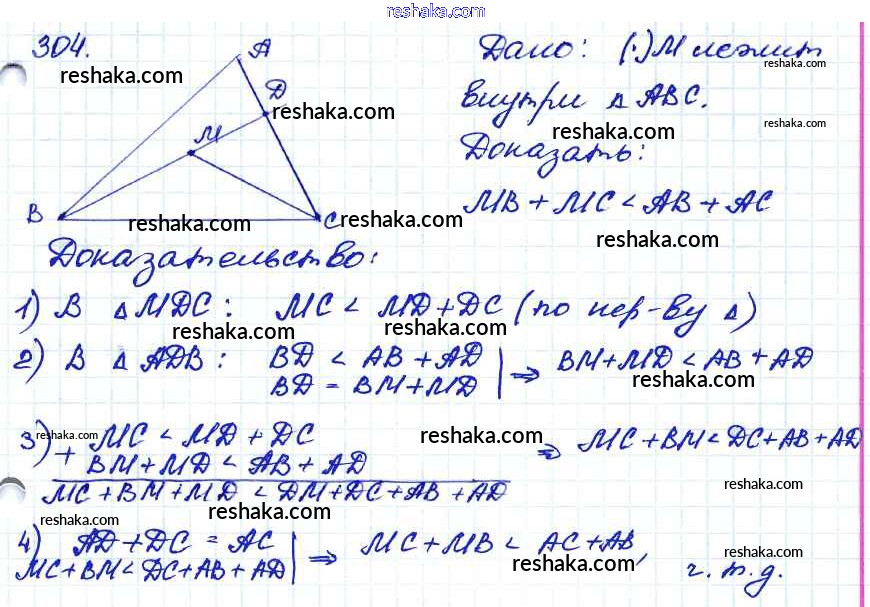 reshaka.com
304.
A
reshaka.com
D
reshaka.com
M
B
C
reshaka.com
reshaka.com
Дано: (·) M лежит
reshaka.com
внутри △ ABC.
reshaka.com
reshaka.com
Доказать:
MB + MC < AB + AC
reshaka.com
Доказательство:
1) В △ MDC: MC < MD + DC (по нер-ву △)
reshaka.com
reshaka.com
2) В △ ADB: BD < AB + AD | ⇒ BM + MD < AB + AD
BD = BM + MD
reshaka.com
3) MC < MD + DC
reshaka.com
reshaka.com
⇒ MC + BM < DC + AB + AD
+ BM + MD < AB + AD
MC + BM + MD < DM + DC + AB + AD
reshaka.com
reshaka.com
reshaka.com
4) AD + DC = AC | ⇒ MC + MB < AC + AB,
MC + BM < DC + AB + AD
reshaka.com
reshaka.com
ч. т. д.